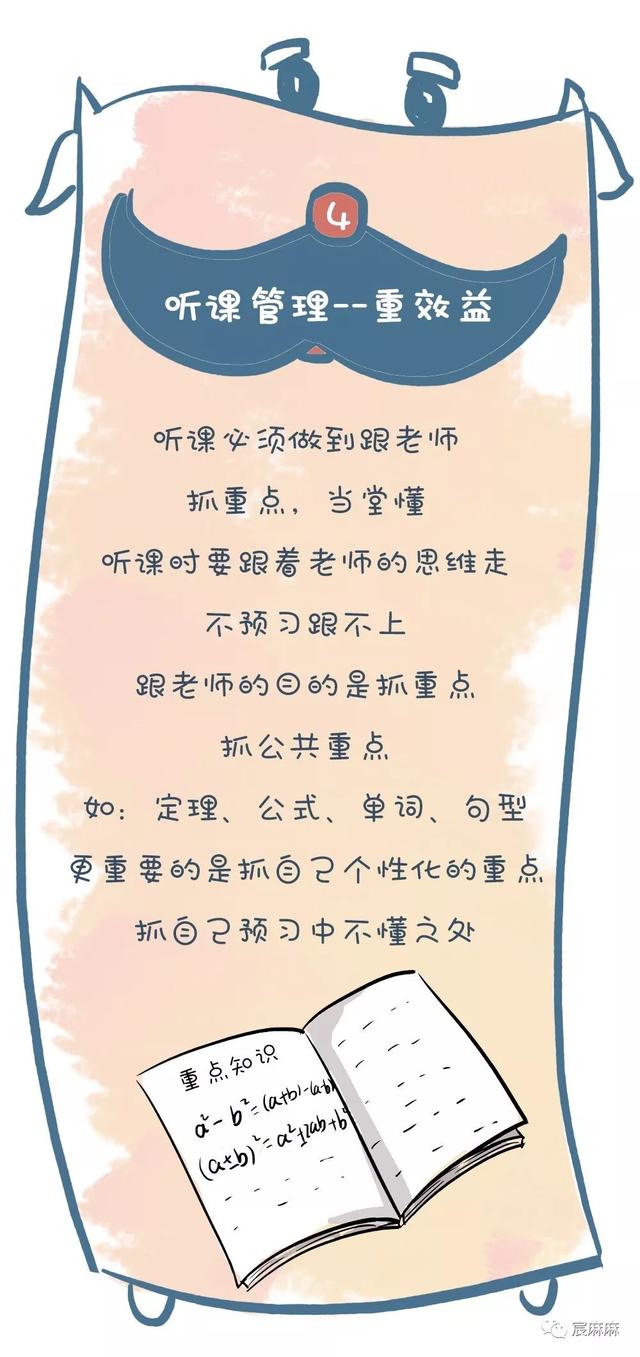 4
听课管理--重效益
听课必须做到跟老师
抓重点，当堂懂
听课时要跟着老师的思维走
不预习跟不上
跟老师的目的是抓重点
抓公共重点
如：定理、公式、单词、句型
更重要的是抓自己个性化的重点
抓自己预习中不懂之处
重点知识
a²-b²=(a+b)-(a-b)
(a±b)²=a²±2ab+b²
宸麻麻